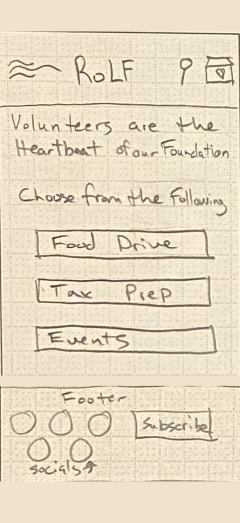 RoLF
Volunteers are the
Heartbeat of our Foundation
Choose from the Following
Food Drive
Tax Prep
Events
Footer
Subscribe
socials